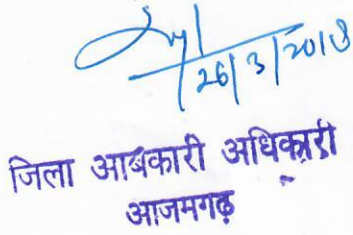 26/3/2018
जिला आबकारी अधिकारी
आजमगढ़